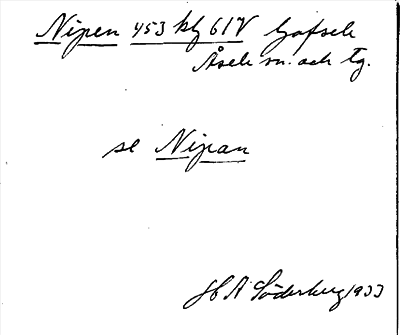 Nipen 453 kbl 61V Gafsele
Åsele sn. och tg.
se Nipan
H A Söderberg 1933